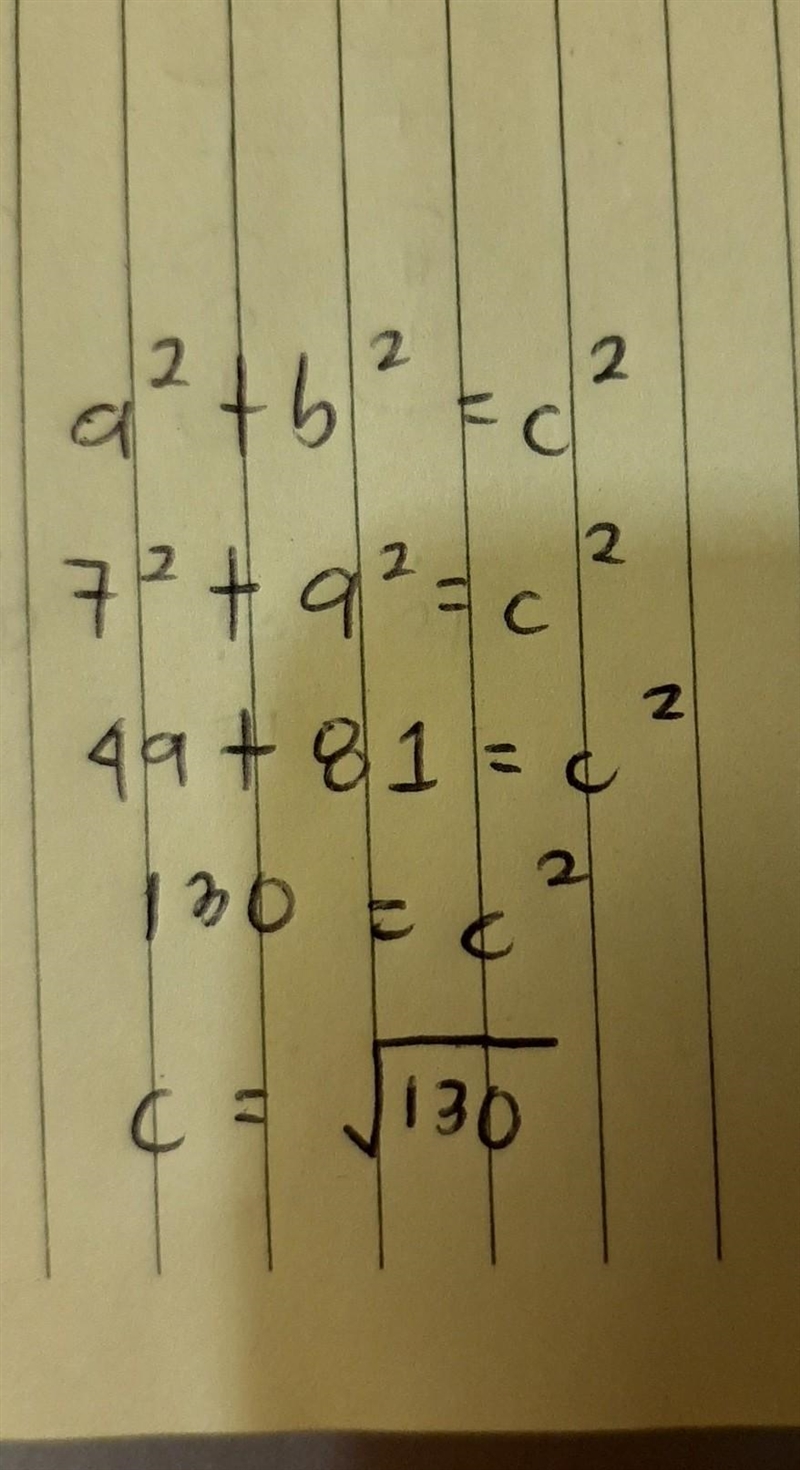 a² + b² = c²
7² + 9² = c²
49 + 81 = c²
130 = c²
c = √130